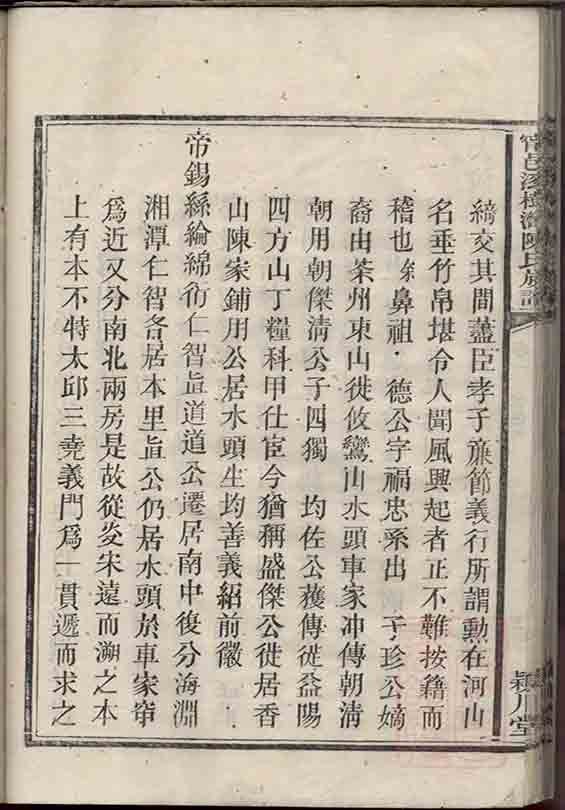 締交其間藎臣孝子廉節義行所謂勲在河山
名垂竹帛堪令人聞風興起者正不難按籍而
稽也余鼻祖 德公字福忠系出 子珍公嫡
裔由茶州東山徙攸鸞山水頭車家冲傳朝清
朝用朝傑清公子四獨 均佐公蕃傳徙益陽
四方山丁糧科甲仕宦今猶稱盛傑公徙居香
山陳家鋪用公居水頭生均善義紹前徽
帝錫絲綸綿衍仁智㫖道道公遷居南中後分海淵
湘潭仁智各居本里㫖公仍居水頭於車家窜
爲近又分南北兩房是故從炎宋遠而溯之本
上有本不特太邱三堯義門爲一貫遞而求之
陳氏族譜
潁川堂